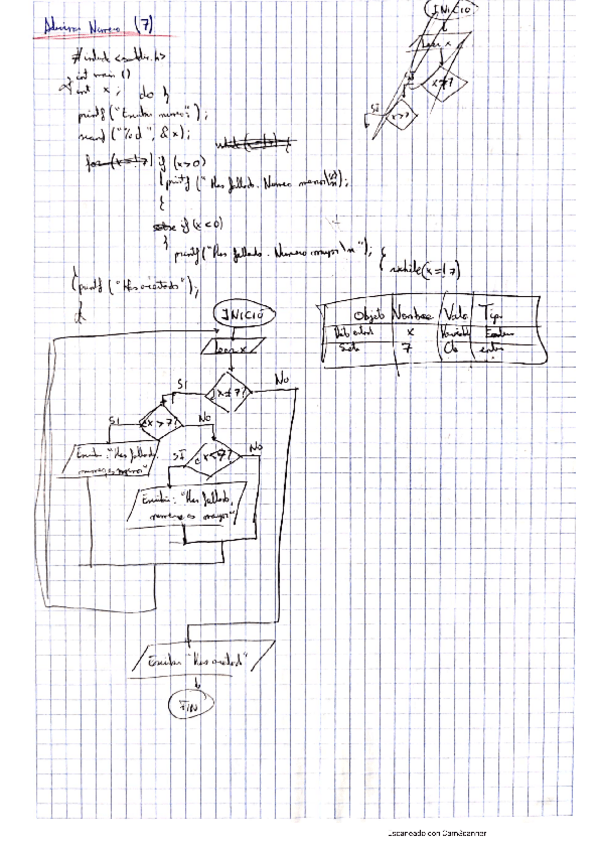 Adivinar Numero (7)
#include <stdio.h>
int main ()
{ int x ; do {
printf ("Escribe numero: ");
scanf ("%d", &x);
if (x>0)
{printf ("Has fallado. Numero menor\n");
}
else if (x<0)
{
printf ("Has fallado. Numero mayor\n"); } while (x=!7)
printf ("Has acertado");
}
INICIO
Leer x
x>?
INICIO
Leer x
SI
No
SI
¿x>7?
No
SI
¿x<7?
No
Escribir: "Has fallado,
numero es menor"
Escribir: "Has fallado,
numero es mayor"
Escribir "Has acertado"
FIN
Objeto Nombre Valor Tipo
x Variable Entero
7 Cte
Escaneado con CamScanner